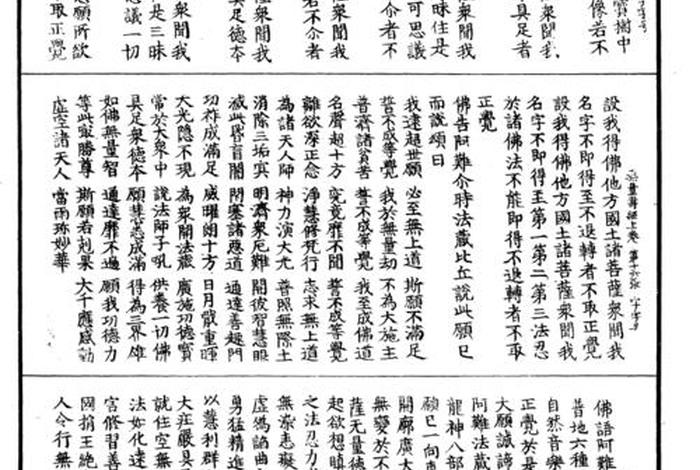 寶樹中
像若不
衆聞我
具足者
薩衆聞我
昧住是
可思議
介者不
衆聞我
若不介者
薩衆聞我
具足德本
衆聞我
是三昧
思議一切
意願所欲
取正覺
設我得佛他方國土諸菩薩衆聞我
名字不即得至不退轉者不取正覺
設我得佛他方國土諸菩薩衆聞我
名字不即得至第一第二第三法忍
於諸佛法不能即得不退轉者不取
正覺
佛告阿難介時法藏比丘說此願已
而說頌曰
我建超世願 必至無上道 斯願不滿足
誓不成等覺 我於無量劫 不為大施主
普濟諸貧苦 誓不成等覺 我至成佛道
名聲超十方 究竟靡不聞 誓不成等覺
離欲深正念 淨慧修梵行 志求無上道
為諸天人師 神力演大光 普照無際土
消除三垢冥 明濟衆厄難 開彼智慧眼
滅此昏盲闇 閉塞諸惡道 通達善趣門
功祚成滿足 威曜朗十方 日月戢重暉
天光隱不現 為衆開法藏 廣施功德寶
常於大衆中 說法師子吼 供養一切佛
具足衆德本 願慧悉成滿 得為三界雄
如佛無量智 通達靡不遍 願我功德力
等此最勝尊 斯願若剋果 大千應感動
虛空諸天人 當雨珍妙華
佛語阿難
普地六種
自然音樂
正覺於是
大願誠諦
阿難法藏
龍神八部
願已一向
開廓廣大
無變於不
薩無量德
起欲想瞋
之法忍力
無染恚癡
虛偽諂曲
勇猛精進
以慧利群
大莊嚴具
就住空無
法如化遠
宮修習善
國捐王絕
人令行無